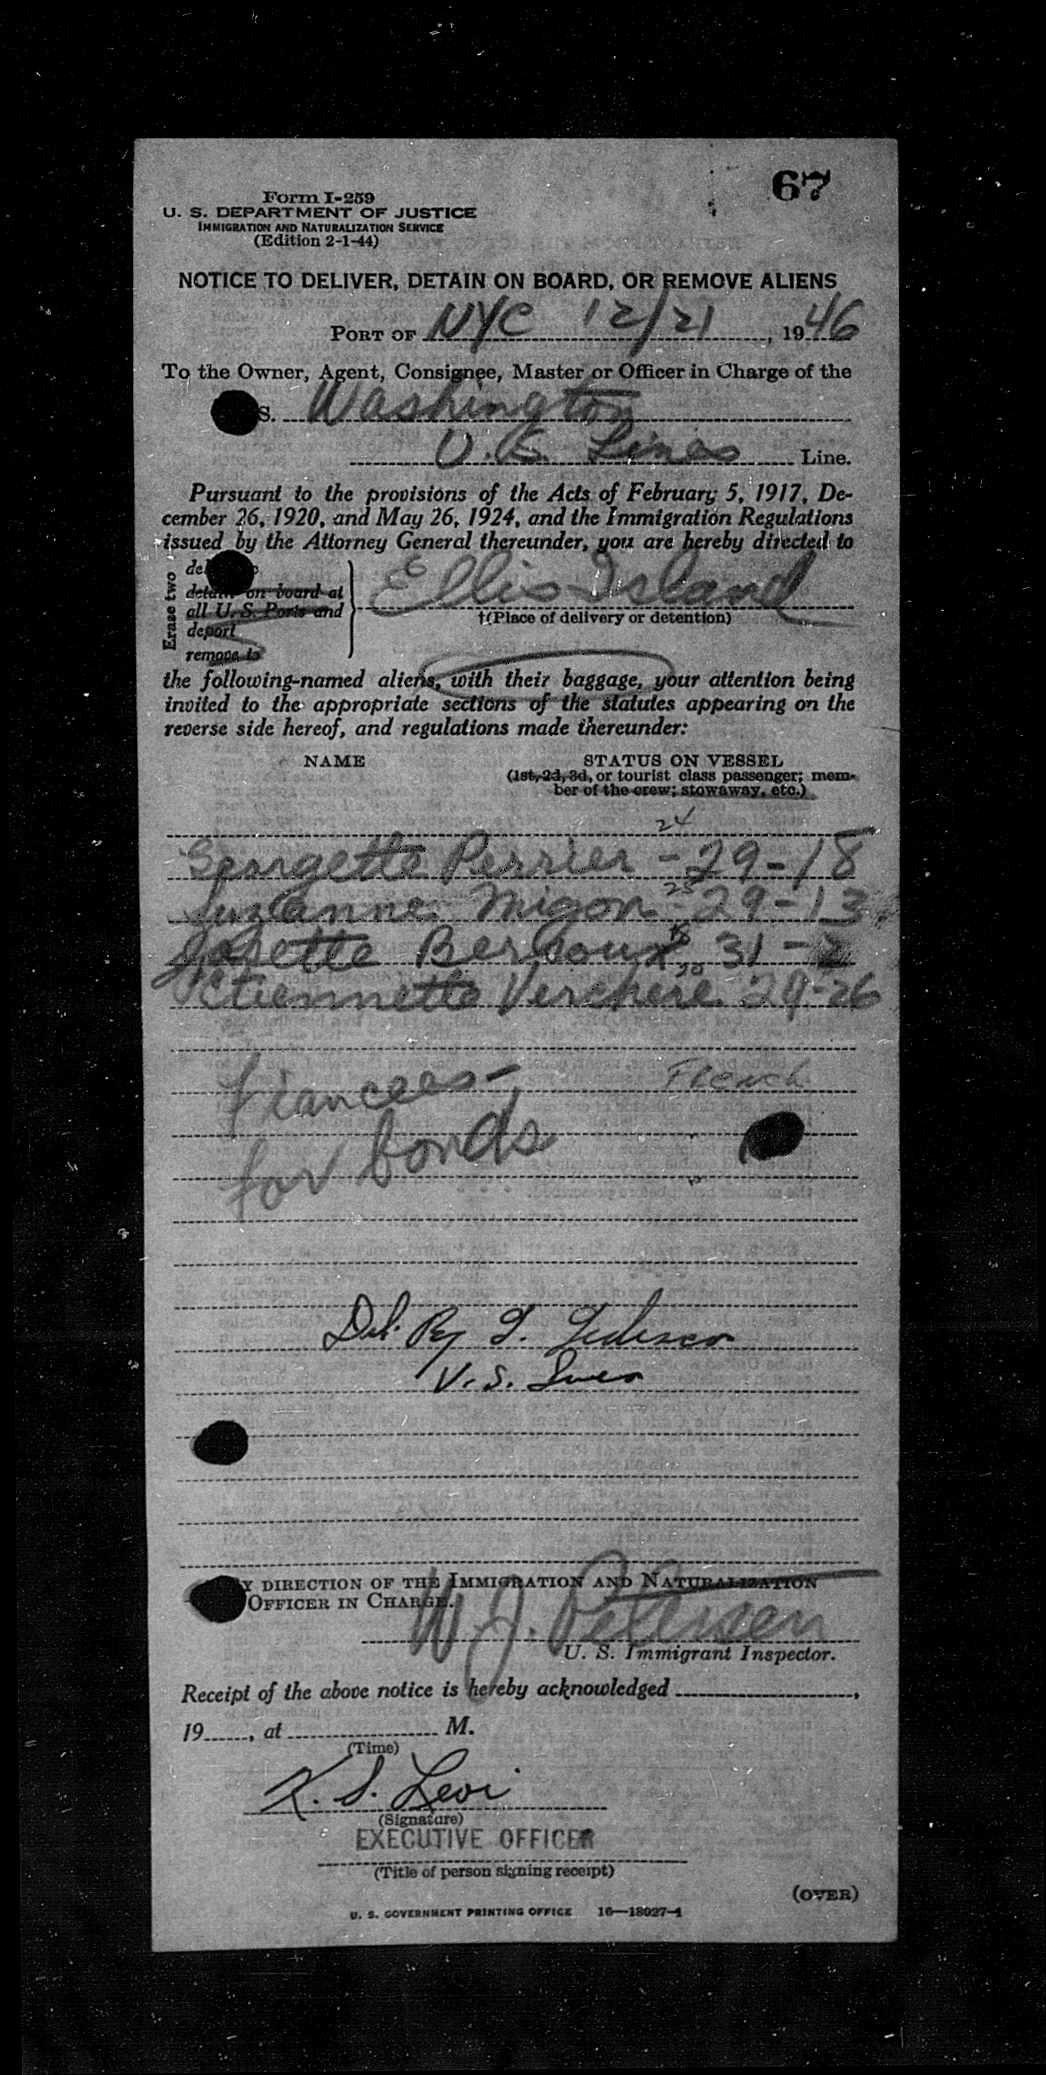 67
Form I-259
U. S. DEPARTMENT OF JUSTICE
IMMIGRATION AND NATURALIZATION SERVICE
(Edition 2-1-44)
NOTICE TO DELIVER, DETAIN ON BOARD, OR REMOVE ALIENS
PORT OF NYC 12/21, 1946
To the Owner, Agent, Consignee, Master or Officer in Charge of the
S. Washington
U.S. Lines Line.
Pursuant to the provisions of the Acts of February 5, 1917, De-
cember 26, 1920, and May 26, 1924, and the Immigration Regulations
issued by the Attorney General thereunder, you are hereby directed to
Erase two
detain on board at
all U. S. Ports and
deport
remove to
Ellis Island
†(Place of delivery or detention)
the following-named aliens, with their baggage, your attention being
invited to the appropriate sections of the statutes appearing on the
reverse side hereof, and regulations made thereunder:
NAME STATUS ON VESSEL
(1st, 2d, 3d, or tourist class passenger; mem-
ber of the crew; stowaway, etc.)
24
Georgette Perrier - 29-18
25
Suzanne Migon - 29-13
Josette Bernoux 31-2
20
Etiennette Verchere 29-26
fiancees- French
for bonds
Del. By T. Tedesco
U.S. Lines
BY DIRECTION OF THE IMMIGRATION AND NATURALIZATION
OFFICER IN CHARGE.
W. J. Petersen
U. S. Immigrant Inspector.
Receipt of the above notice is hereby acknowledged
19, at M.
(Time)
K. S. Levi
(Signature)
EXECUTIVE OFFICER
(Title of person signing receipt)
(OVER)
U. S. GOVERNMENT PRINTING OFFICE 16—18027-1